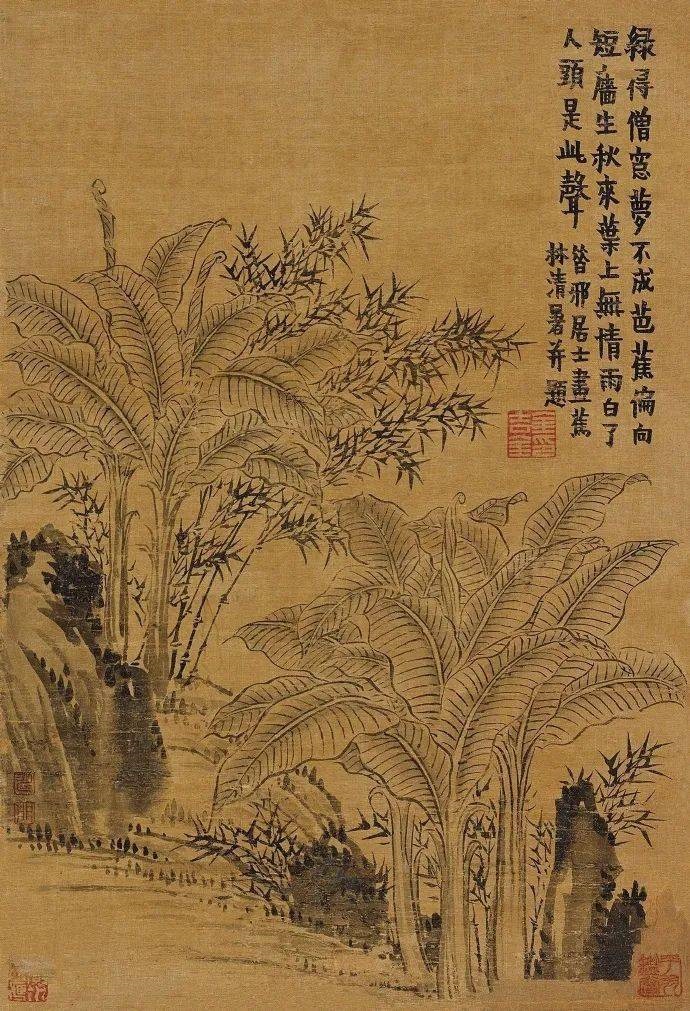 綠得僧窓夢不成芭蕉偏向
短牆生秋來葉上無情雨白了
人頭是此聲
昔邪居士畫蕉
林清暑并題